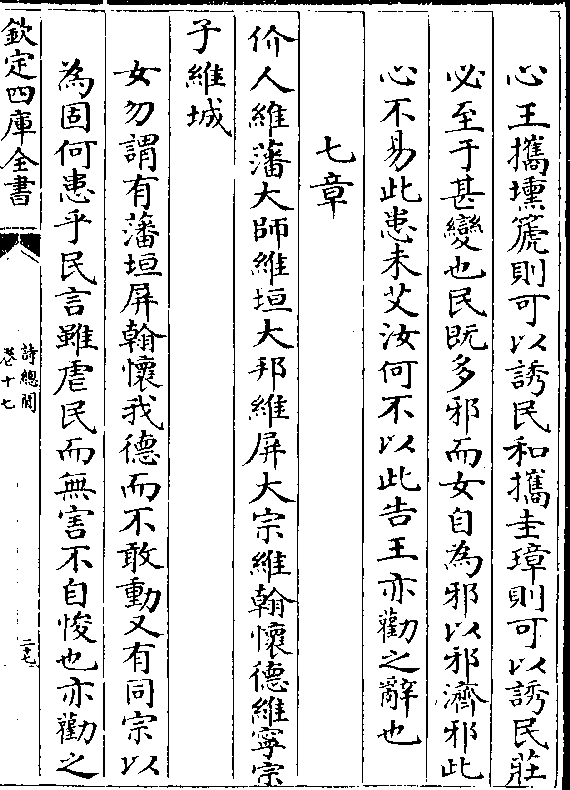 心王攜壎篪則可以誘民和攜圭璋則可以誘民莊
必至于甚變也民既多邪而女自為邪以邪濟邪此
心不易此患未艾汝何不以此告王亦勸之辭也
七章
价人維藩大師維垣大邦維屏大宗維翰懷德維寧宗
子維城
女勿謂有藩垣屏翰懷我德而不敢動又有同宗以
為固何患乎民言雖虐民而無害不自悛也亦勸之
欽定四庫全書
詩總聞
卷十七